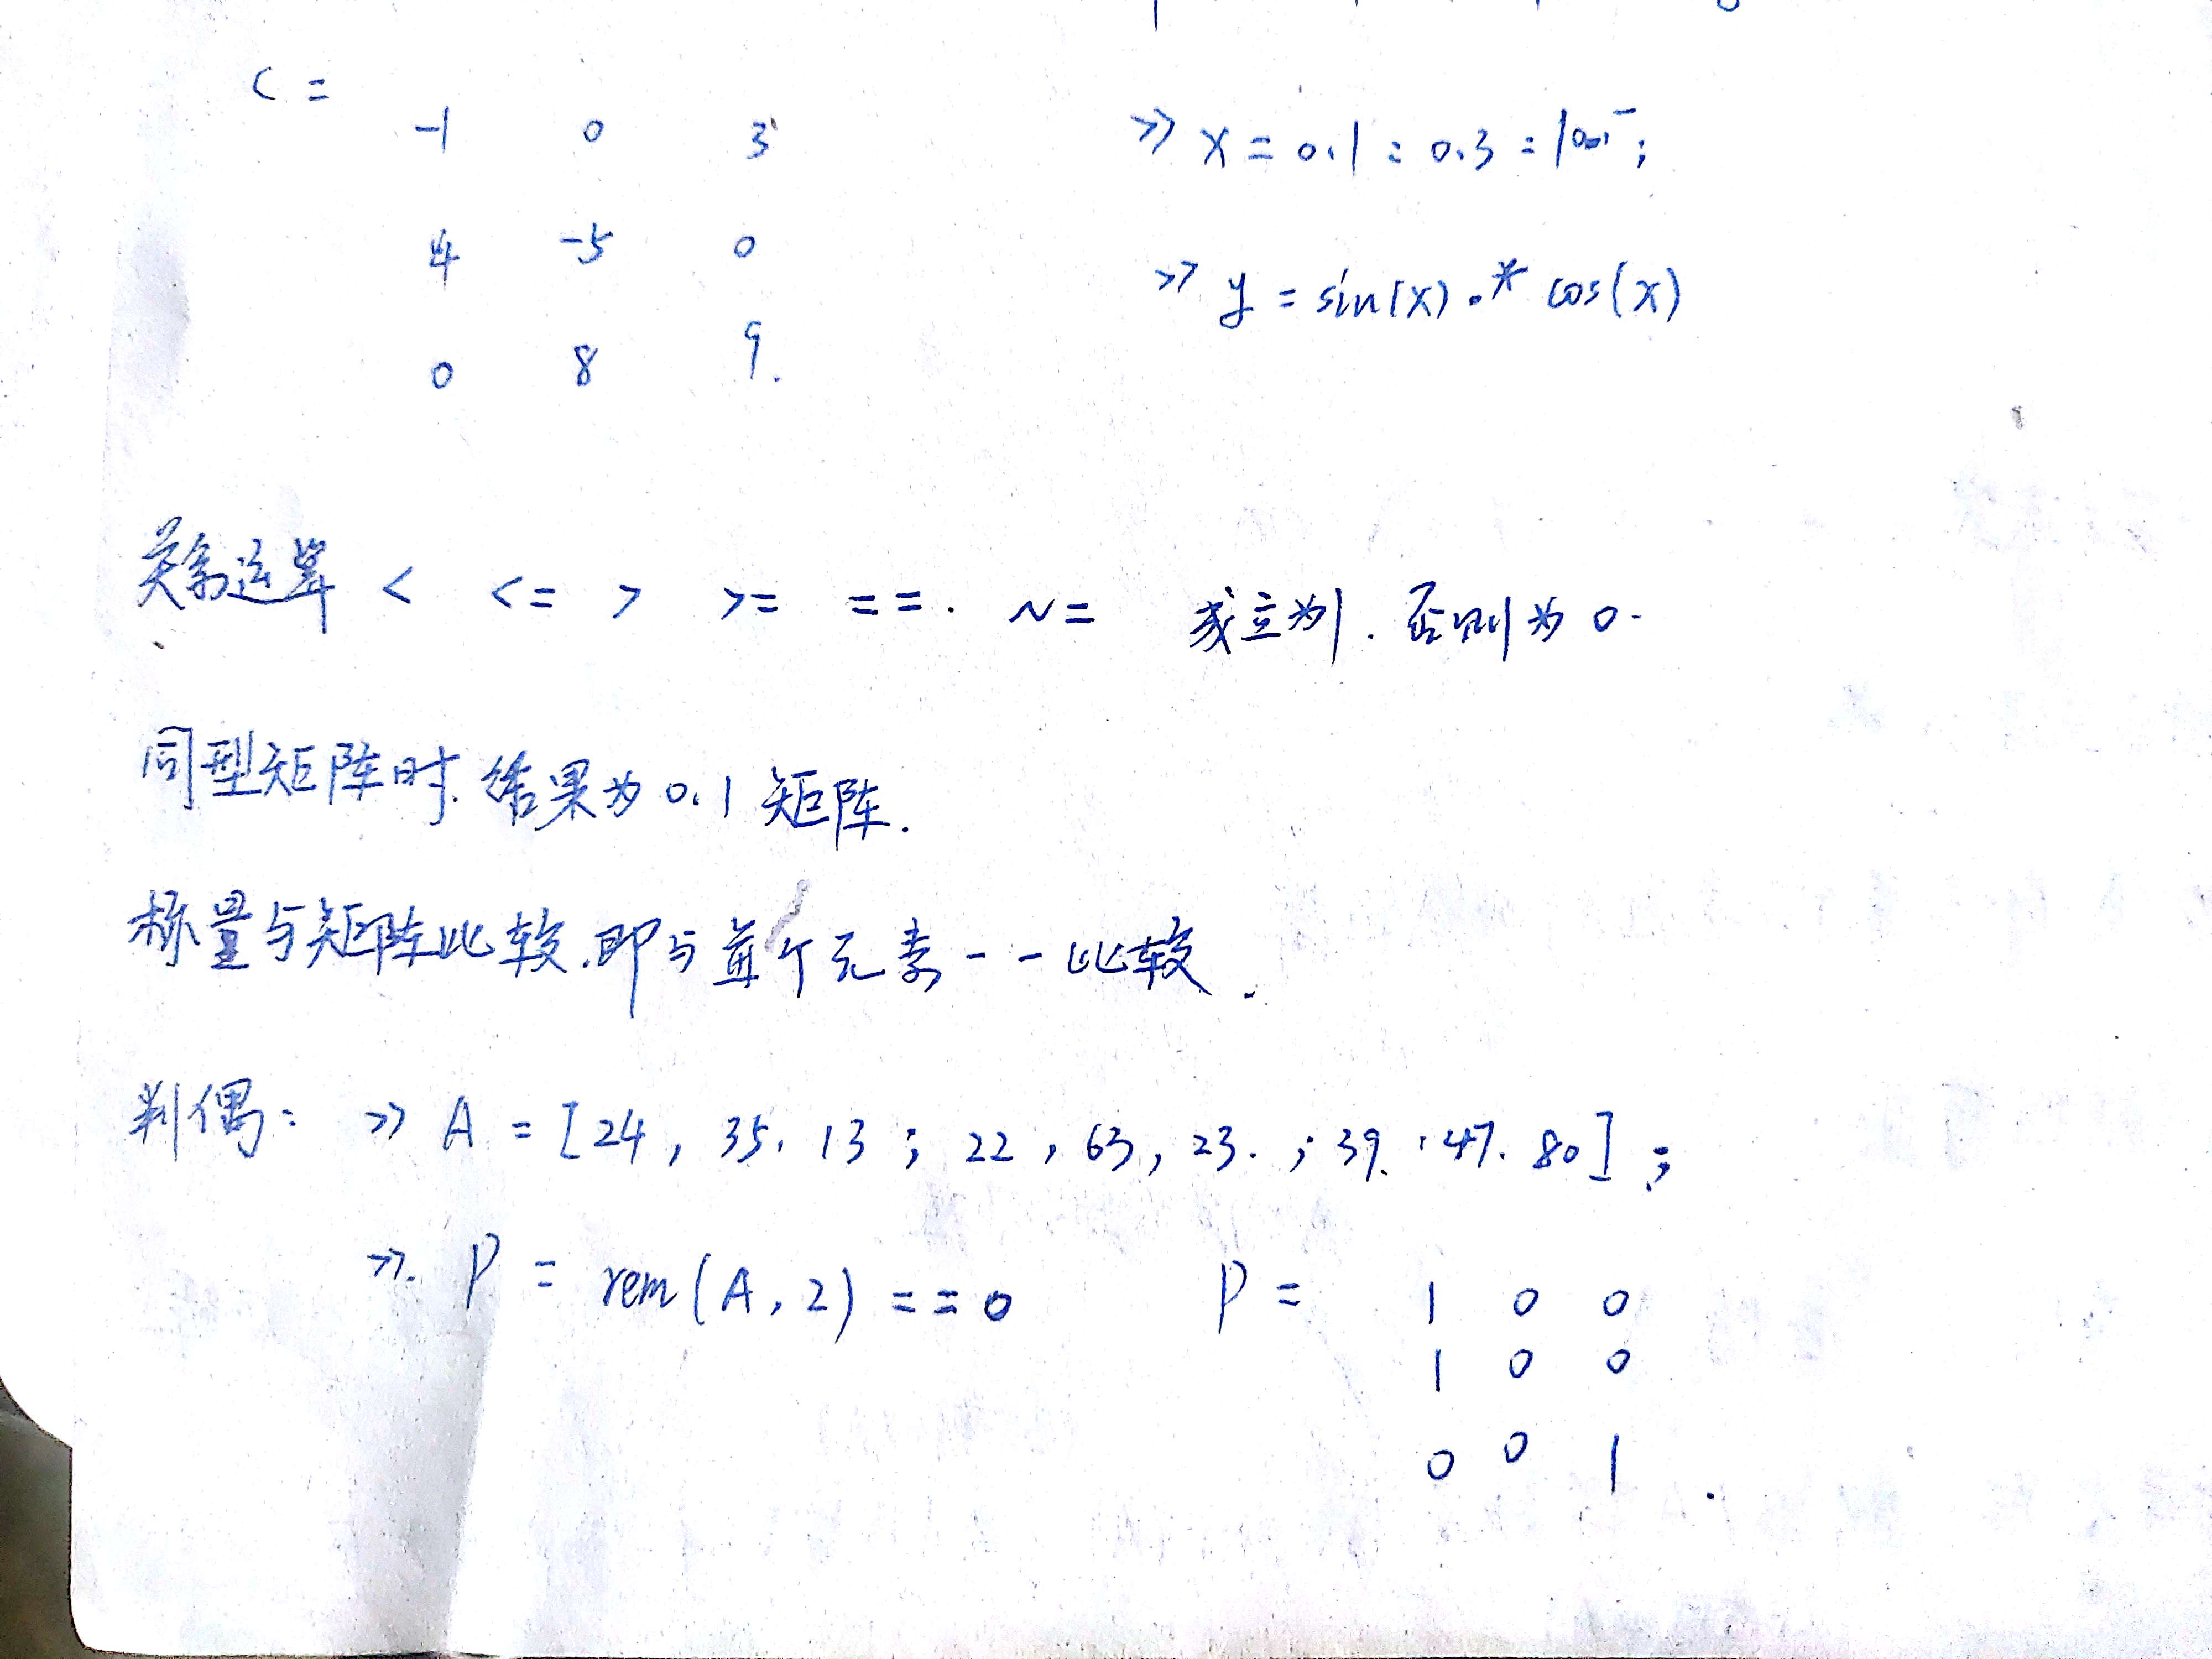 C =
-1 0 3
4 -5 0
0 8 9.
>> x = 0.1 : 0.3 :
>> y = sin(x) .* cos(x)
关系运算 < <= > >= == . ~= 成立为1. 否则为0.
同型矩阵时. 结果为0.1矩阵.
标量与矩阵比较.即与每个元素一一比较.
判偶: >> A = [24, 35. 13 ; 22 , 63, 23. ; 39. , 47. 80] ;
>>. P = rem(A, 2) == 0
P =
1 0 0
1 0 0
0 0 1 .